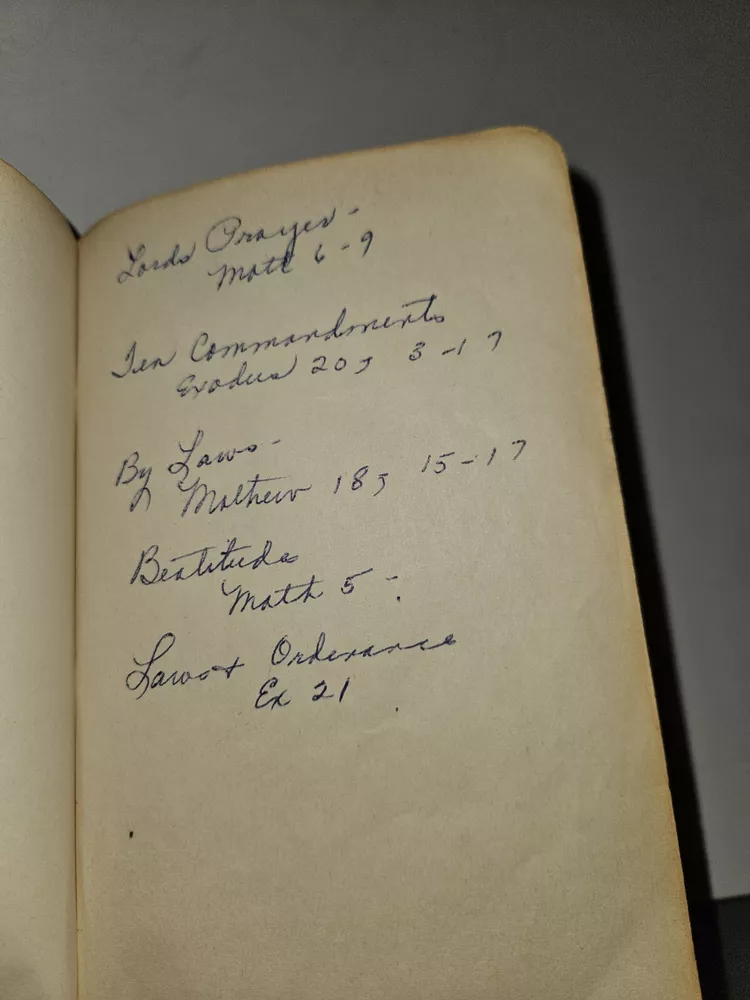 Lords Prayer -
Matt 6 - 9
Ten Commandments
Exodus 20; 3 - 17
By Laws -
Mathew 18; 15 - 17
Beatituds
Math 5 -
Laws + Ordenance
Ex 21